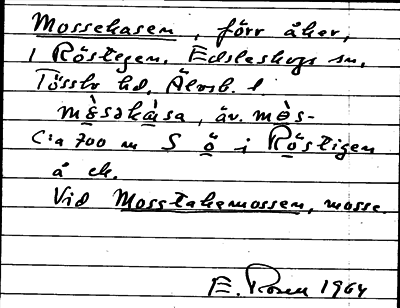 Mossekasen, förr åker,
i Röstegen. Edsleskogs sn,
Tössbo hd, Älvsb. l
mọ̀səkàsa, äv. mọ̀s-
C:a 700 m S ö i Röstigen
å ek.
Vid Mosstakemossen, mosse.
E. Rosen 1964